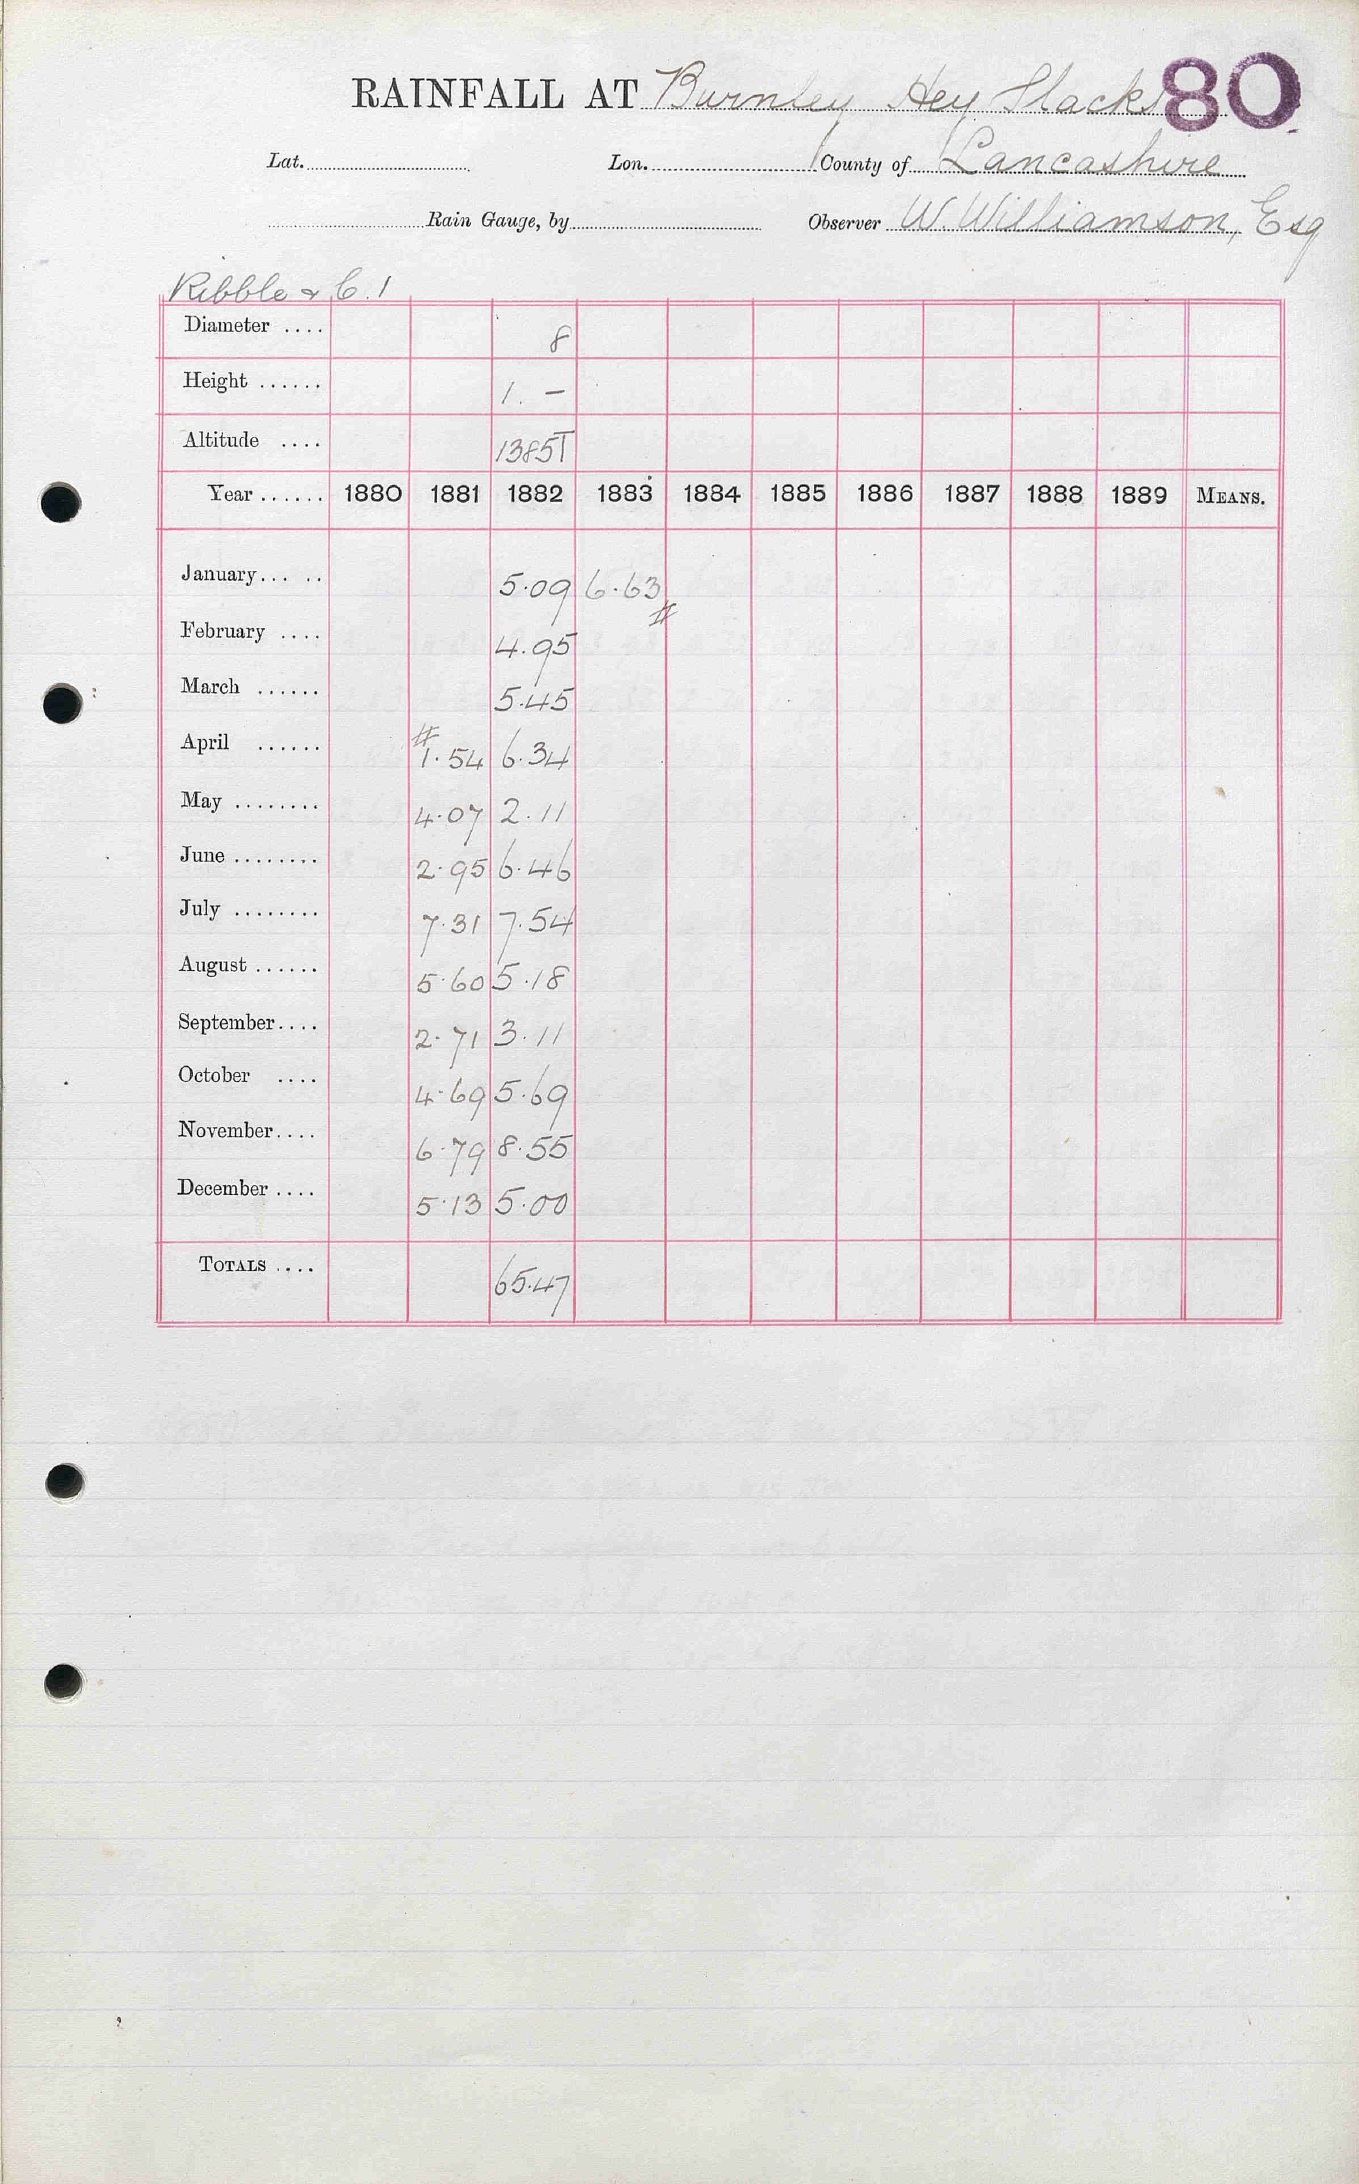 RAINFALL AT Burnley Hey Slacks 80
Lat. Lon. County of Lancashire
Rain Gauge, by Observer W. Williamson, Esq
Ribble & C. 1
Diameter .... 8
Height ...... 1. –
Altitude .... 1385T
Year ...... 1880 1881 1882 1883 1884 1885 1886 1887 1888 1889 MEANS.
January... .. 5.09 6.63 #
February .... 4.95
March ...... 5.45
April ...... # 1.54 6.34
May ........ 4.07 2.11
June ........ 2.95 6.46
July ........ 7.31 7.54
August ...... 5.60 5.18
September.... 2.71 3.11
October .... 4.69 5.69
November.... 6.79 8.55
December .... 5.13 5.00
TOTALS .... 65.47